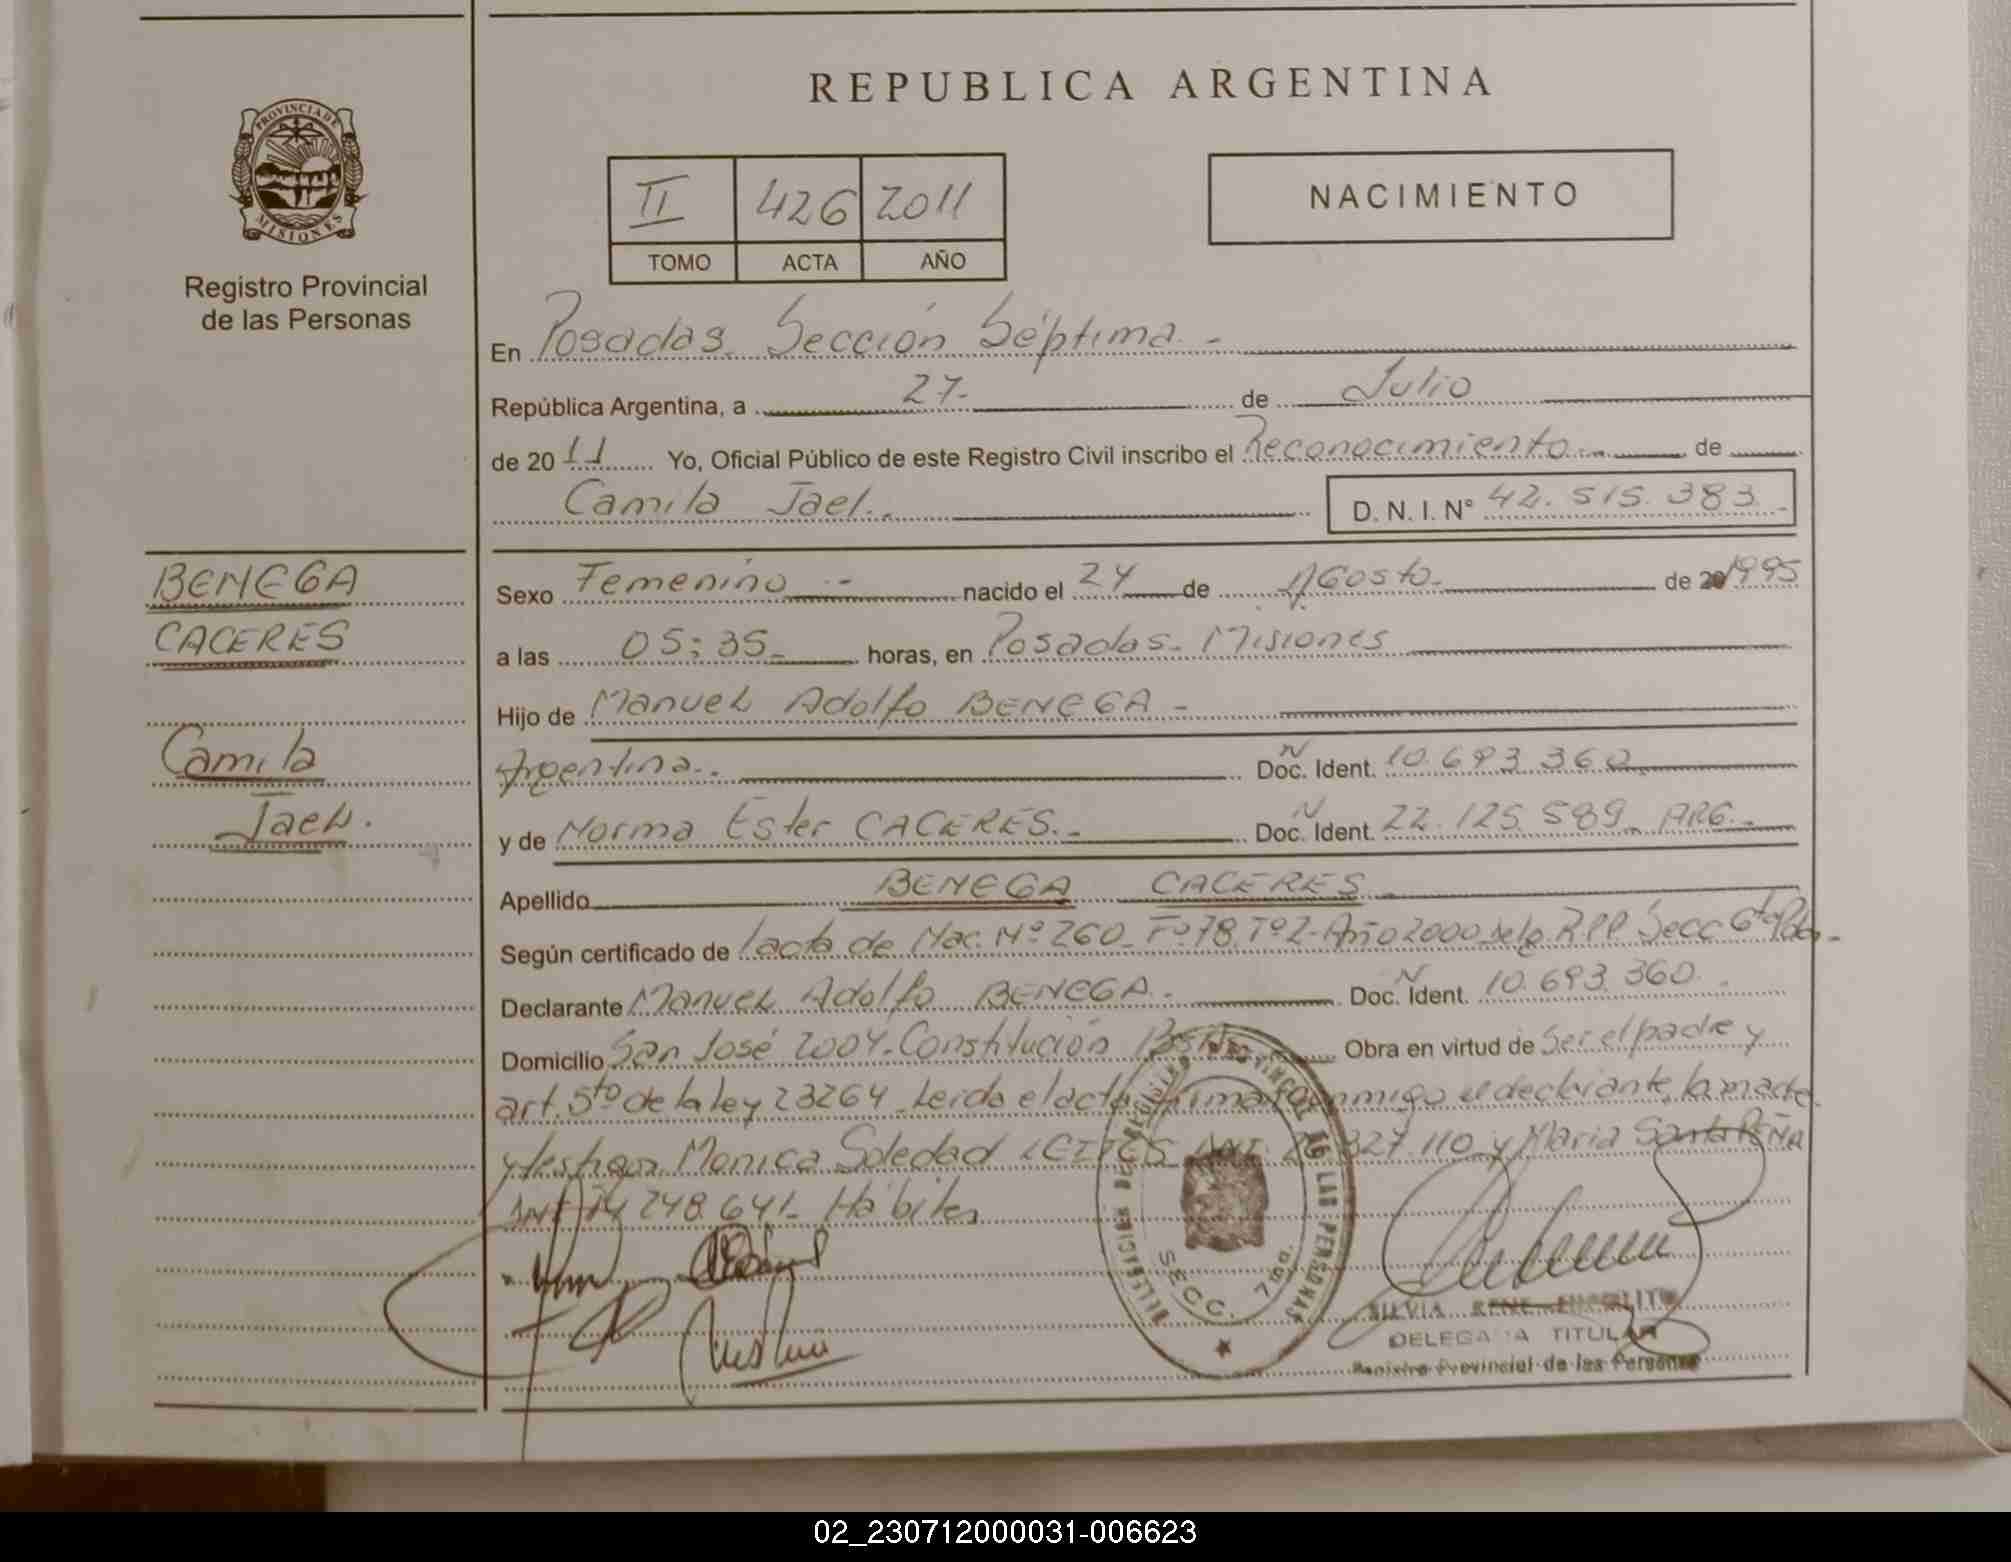 REPUBLICA ARGENTINA
PROVINCIA DE
MISIONES
Registro Provincial
de las Personas
II 426 2011
TOMO ACTA AÑO
NACIMIENTO
En Posadas Sección Séptima. -
República Argentina, a 27- de Julio
de 2011 Yo, Oficial Público de este Registro Civil inscribo el Reconocimiento de
Camila Jael. D. N. I. N° 42.515.383
BENEGA
CACERES
Camila
Jael.
Sexo Femenino nacido el 24 de Agosto de 1995
a las 05:35 horas, en Posadas- Misiones
Hijo de Manuel Adolfo BENEGA -
Argentina. Doc. Ident. N 10.693.360
y de Norma Ester CACERES. Doc. Ident. N 22.125.589 ARG.
Apellido BENEGA CACERES
Según certificado de acta de Nac. Nº 260 Fº 78 Tº 2 Año 2000 de la RPP Secc 6ta Pdas-
Declarante Manuel Adolfo BENEGA. Doc. Ident. N 10.693.360
Domicilio San José 2004. Constitución Obra en virtud de Ser el padre y
art. 5to de la ley 23264 Leida el acta firma conmigo el declarante, la madre
y testigos Monica Soledad 327.110 y Maria Santa PEÑA
DNI 14.248.641- Hábiles
DELEGACION DEL REGISTRO PROVINCIAL DE LAS PERSONAS
SECC. 7ma.
SILVIA RENE
DELEGADA TITULAR
Registro Provincial de las Personas
02_230712000031-006623